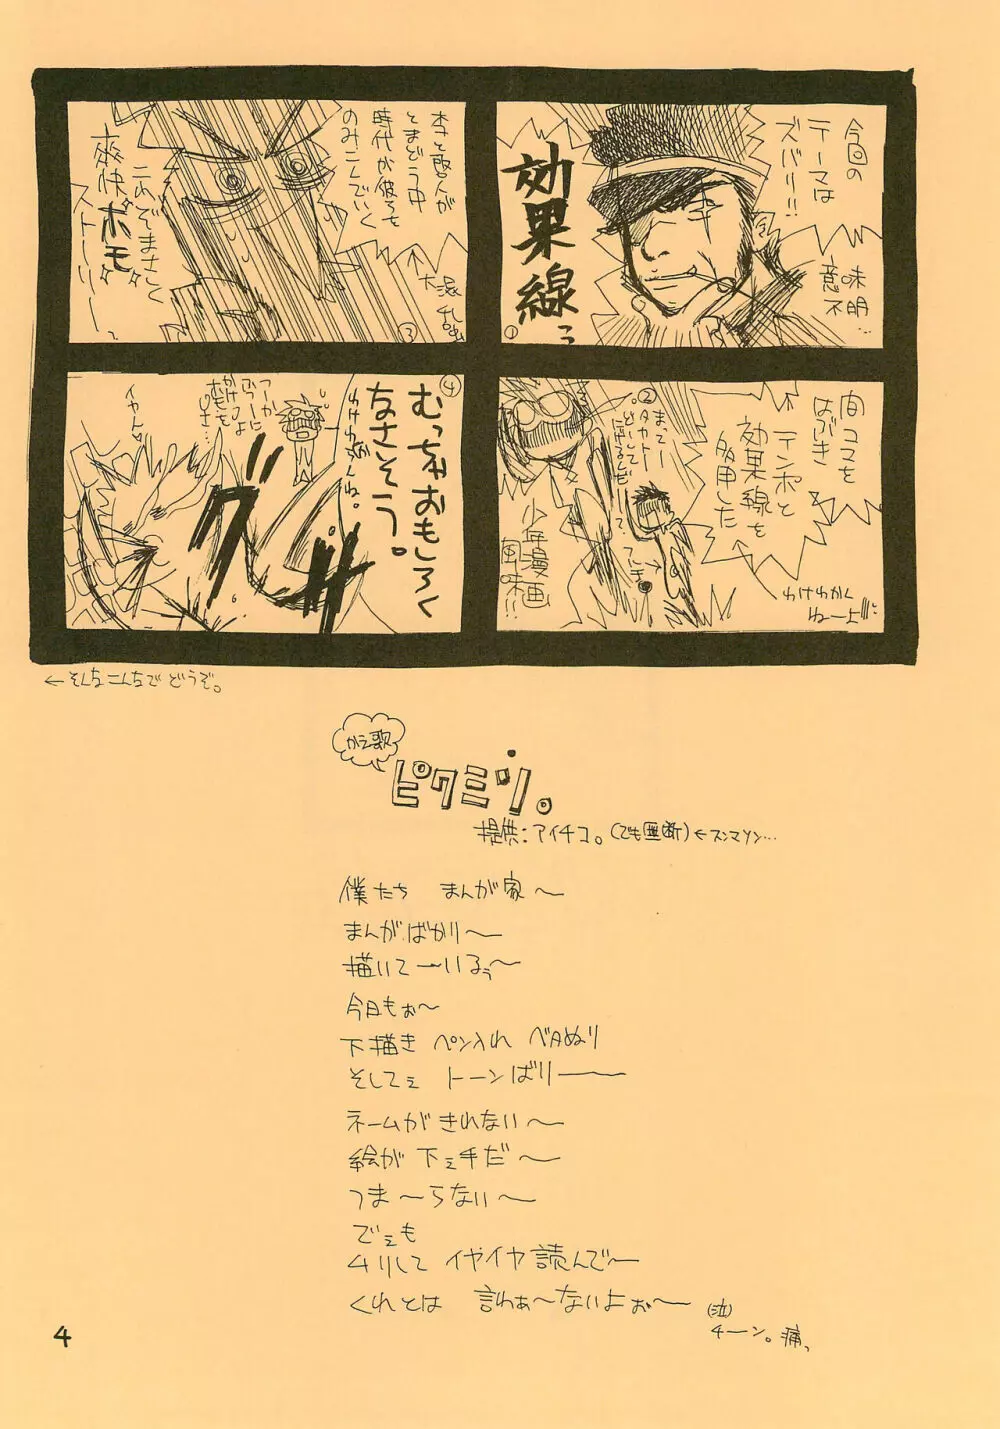 今回の
テーマは
ズバリ!!
効果線っ
意味
不明…
①
間コマを
はぶき
テンポと
効果線を
多用した
②
まってー
タカトー
どうして
少年漫画
風味!!
わけわかく
ねーよ!!!
本を読んが
とまどう中
時代が彼らを
のみこんでいく
これぞまさしく
爽快ホモ
ストーリーっ
③
④
むっちゃおもしろく
なさそう。
わけわかんね。
イヤん
グサ
←そんなこんなで どうぞ。
かえ歌
ピクミン。
提供:アイチコ。(でも無断)←スンマソン…
僕たち まんが家〜
まんがばかり〜
描いて〜いるぅ〜
今日もぉ〜
下描き ペン入れ ベタぬり
そしてぇ トーンばりー
ネームがきれない〜
絵が 下ぇ手だ〜
つま〜らない〜
でぇも
ムリして イヤイヤ読んで〜
くれとは 言わぁ〜ないよぉ〜
(泣)
チーン。痛っ
4